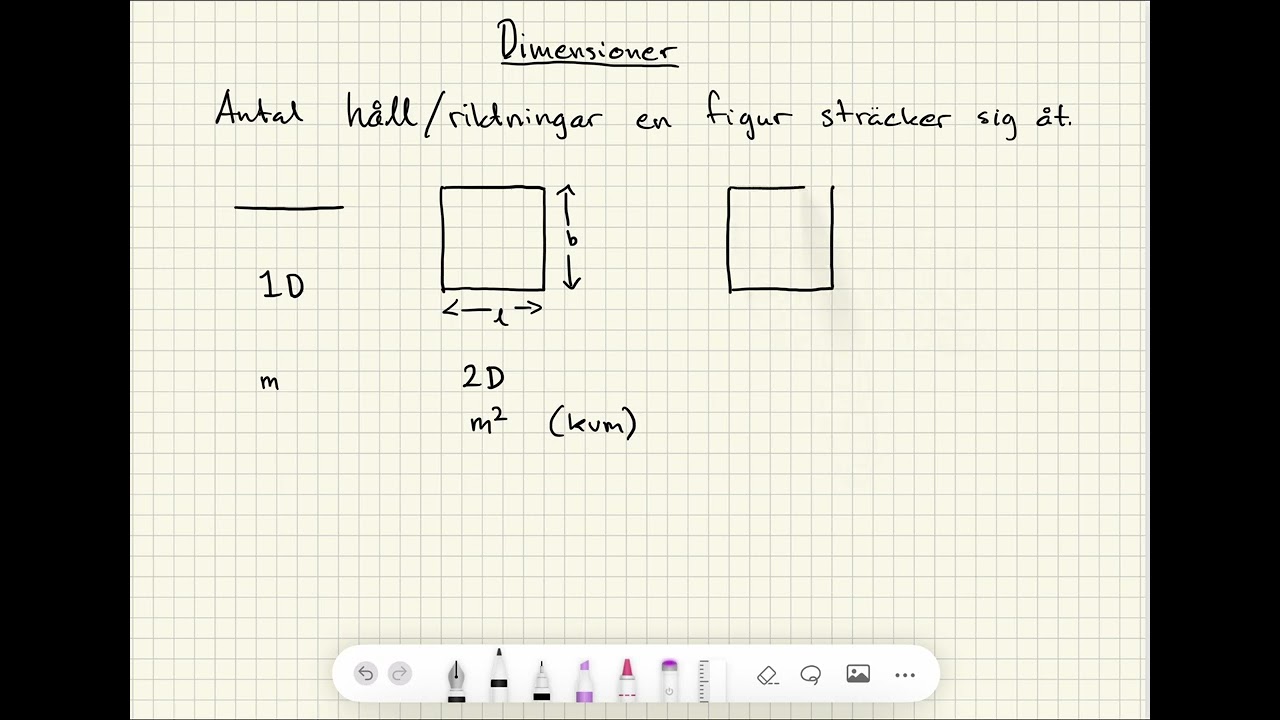 Dimensioner
Antal håll/riktningar en figur sträcker sig åt.
b
1D
l
m
2D
m² (kvm)